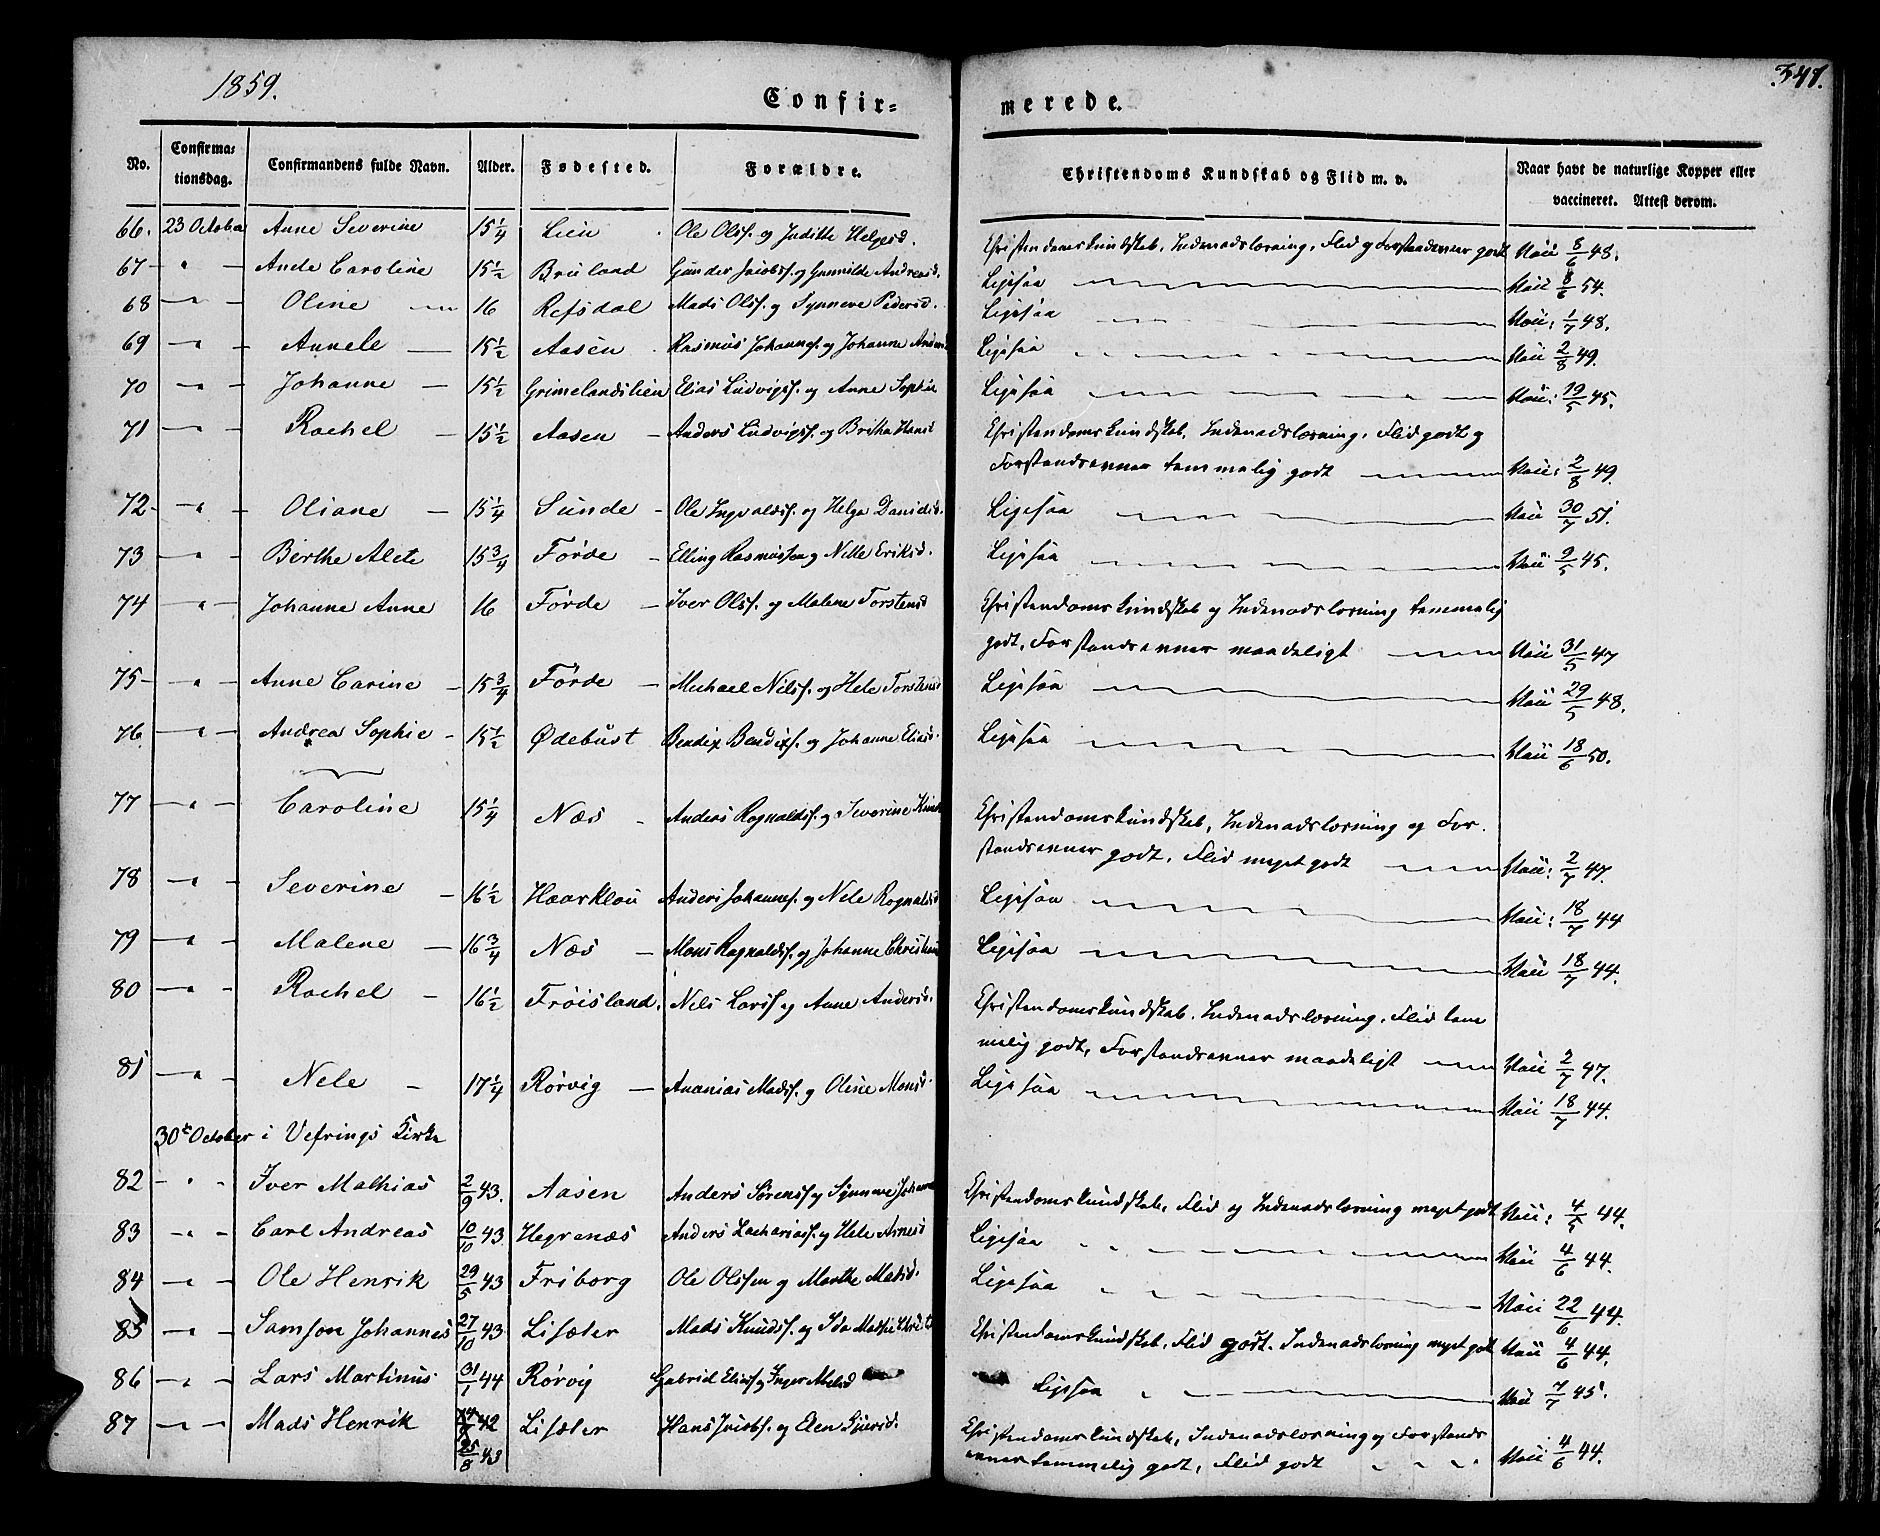 1859.
Confir-
merede.
347.
No.
Confirma-
tionsdag.
Confirmandens fulde Navn.
Alder.
Fødested.
Forældre.
Christendoms Kundskab og Flid m. v.
Naar havt de naturlige Kopper eller
vaccineret. Attest derom.
66. 23 October Anne Severine 15 1/4 Lien Ole Olss. og Judithe Helgesd. Christendomskundskab, Indenadslæsning, Flid og Forstandsevner godt Vacc 8/6 48.
67 - " - Ande Caroline 15 1/2 Bruland Gunder Jacobss. og Gunnilde Andreasd. Ligesaa Vacc 8/6 54.
68 - " - Oline 16 Refsdal Mads Olss. og Synneve Pedersd. Ligesaa Vacc: 1/7 48.
69 - " - Annele 15 1/2 Aasen Rasmus Johanness. og Johanne Ligesaa Vacc 2/8 49.
70 - " - Johanne 15 1/2 Grimelandslien Elias Ludvigss. og Anne Sophie Ligesaa Vacc: 19/5 45.
71 - " - Rachel 15 1/2 Aasen Anders Ludvigss. og Britha Hansd Christendomskundskab, Indenadslæsning, Flid godt og
Forstandsevner temmelig godt Vacc: 2/8 49.
72 - " - Oliane 15 1/4 Sunde Ole Ingvaldss. og Helga Danielsd. Ligesaa Vacc 30/7 51.
73 - " - Berthe Alete 15 3/4 Førde Elling Rasmussen og Nille Eriksd. Ligesaa Vacc 2/5 45.
74 - " - Johanne Anne 16 Førde Iver Olss. og Malene Torstensd Christendomskundskab og Indenadslæsning temmelig
godt, Forstandsevner maadeligt Vacc 31/5 47
75 - " - Anne Carine 15 3/4 Førde Michael Nilss. og Hele Torstensd Ligesaa Vacc 29/5 48.
76 - " - Andrea Sophie 15 1/2 Ødebust Bendix Bendixs. og Johanne Eliasd. Ligesaa Vacc 18/6 50.
77 - " - Caroline 15 1/4 Næs Anders Rognaldss. og Severine Ch­ristendomskundskab, Indenadslæsning og For-
standsevner godt, Flid meget godt Vacc: 2/7 47.
78 - " - Severine 16 1/2 Haarklou Anders Johanness. og Nele Rognaldsd Ligesaa Vacc: 18/7 44
79 - " - Malene 16 3/4 Næs Mons Rognaldss. og Johanne Ligesaa Vacc 18/7 44.
80 - " - Rachel 16 1/2 Frøisland. Nels Larss og Anne Andersd. Christendomskundskab, Indenadslæsning, Flid tem
melig godt, Forstandsevner maadeligt Vacc 2/7 47.
81 - " - Nele 17 1/4 Rørvig Ananias Madss. og Oline Monsd. Ligesaa Vacc 18/7 44.
30te October i Vefrings Kirke
82 - " - Iver Mathias 2/9 43. Aasen Anders Sørenss og Synneve Christendomskundskab, Flid og Indenadslæsning meget godt Vacc: 4/5 44.
83 - " - Carl Andreas 10/10 43 Hegrenæs Anders Zachariass. og Hele Arnesd Ligesaa Vacc 4/6 44.
84 - " - Ole Henrik 29/5 43 Friborg Ole Olssen og Marthe Matsd. Ligesaa Vacc 22/6 44.
85 - " - Samson Johannes 27/10 43 Lisæter Mads Knudss. og Ida Christendomskundskab, Flid godt. Indenadslæsning meget godt Vacc 4/6 44.
86 - " - Lars Martinus 31/1 44 Rørvig Gabriel Eliass og Inger Ligesaa Vacc 7/7 45.
87 - " - Mads Henrik 42 Lisæter Hans Jacobs. og Elen Christendomskundskab, Indenadslæsning og Forstands
25/8 43 evner temmelig godt, Flid godt Vacc 4/6 44.